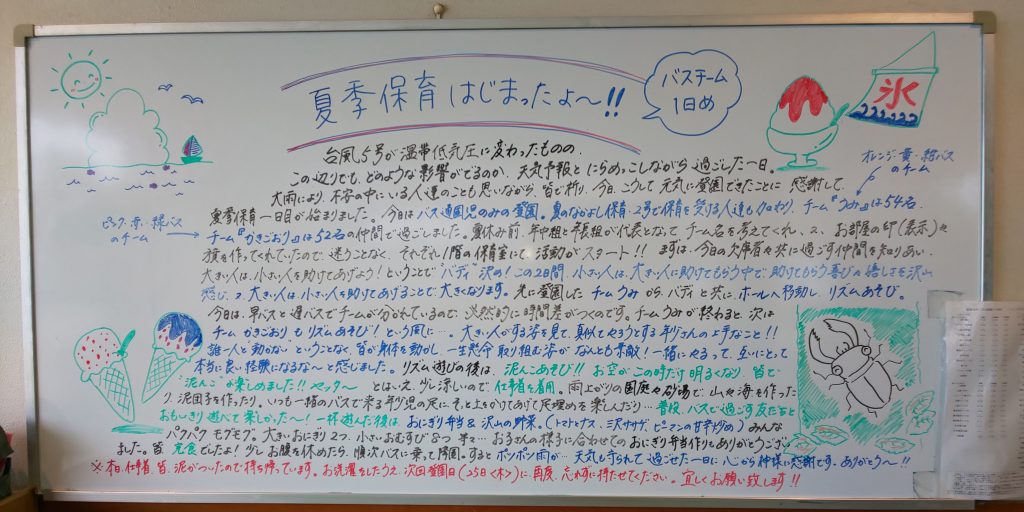 夏季保育はじまったよ〜!!
バスチーム
1日め
氷
台風5号が温帯低気圧に変わったものの、
この辺りでも、どのような影響がでるのか、天気予報とにらめっこしながら過ごした一日。
大雨により、不安の中にいる人達のことも思いながら、皆で祈り、今日、こうして元気に登園できたことに感謝して、
オレンジ・黄・緑バス
のチーム
ピンク・赤・緑バス
のチーム
夏季保育一日目が始まりました。今日はバス通園児のみの登園。夏のなかよし保育、2号で保育を受ける人達も加わり、チーム『うみ』は54名、
チーム『かきごおり』は52名の仲間で過ごしました。夏休み前、年中組と年長組が代表となって チーム名を考えてくれ、又、お部屋の印(表示)や
旗を作ってくれていたので、迷うことなく、それぞれ1階の保育室にて活動がスタート!! まずは、今日の欠席者や共に過ごす仲間を知りあい、
大きい人は、小さい人を助けてあげよう!ということで「バディ」決め!この2日間、小さい人は、大きい人に助けてもらう中で助けてもらう喜びや嬉しさを沢山
感じ、又、大きい人は、小さい人を助けてあげることで、大きくなります。先に登園した チームうみ から、バディと共に、ホールへ移動し、リズムあそび。
今日は、早バスと遅バスでチームが分かれているので、必然的に時間差がつくのです。チームうみが終わると、次は
チームかきごおりもリズムあそび!という風に…。大きい人がする姿を見て、真似てやろうとする年少さんの上手なこと!!
誰一人「動かない」ということなく、皆が身体を動かし、一生懸命取り組む姿がなんとも素敵!一緒にやるって、互いにとって
本当に良い経験になるな〜と感じました。リズム遊びの後は、泥んこあそび!! お空がこの時だけ明るくなり、皆で
「泥んこ」が楽しめました!!ヤッター〜 とはいえ、少し涼しいので、仕事着を着用。雨上がりの園庭や砂場で、山や海を作った
り、泥団子を作ったり。いつも一緒のバスで来る年少児の足に、そっと土をかけてあげて足埋めを楽しんだり…普段、バスで過ごす友だちと
おもいきり遊べて楽しかった〜!一杯遊んだ後は、おにぎり弁当&沢山の野菜。(トマトとナス、三尺ササゲ、ピーマンの甘辛炒め)みんな
パクパク モグモグ。大きいおにぎり2つ、小さいおむすび8つ 等々…お子さんの様子に合わせてのおにぎり弁当作りとありがとうござい
ました。皆、完食でしたよ!少しお腹を休めたら、順次バスに乗って降園。するとポツポツ雨が…天気も守られて過ごせた一日に心から神様に感謝です。ありがとう〜!!
※本日、仕事着、皆、泥がついたので持ち帰っています。お洗濯をしたうえ、次回登園日(25日<木>)に再度、忘れずに持たせてください。宜しくお願い致します!!